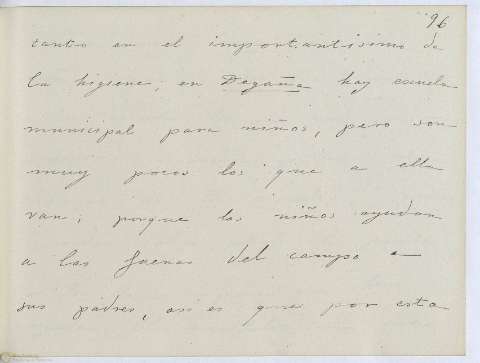 96
tanto en el importantisimo de
la higiene; en Degaña hay escuela
municipal para niños, pero son
muy pocos los que a ella
van; porque los niños ayudan
a las faenas del campo a
sus padres, asi es que por esta